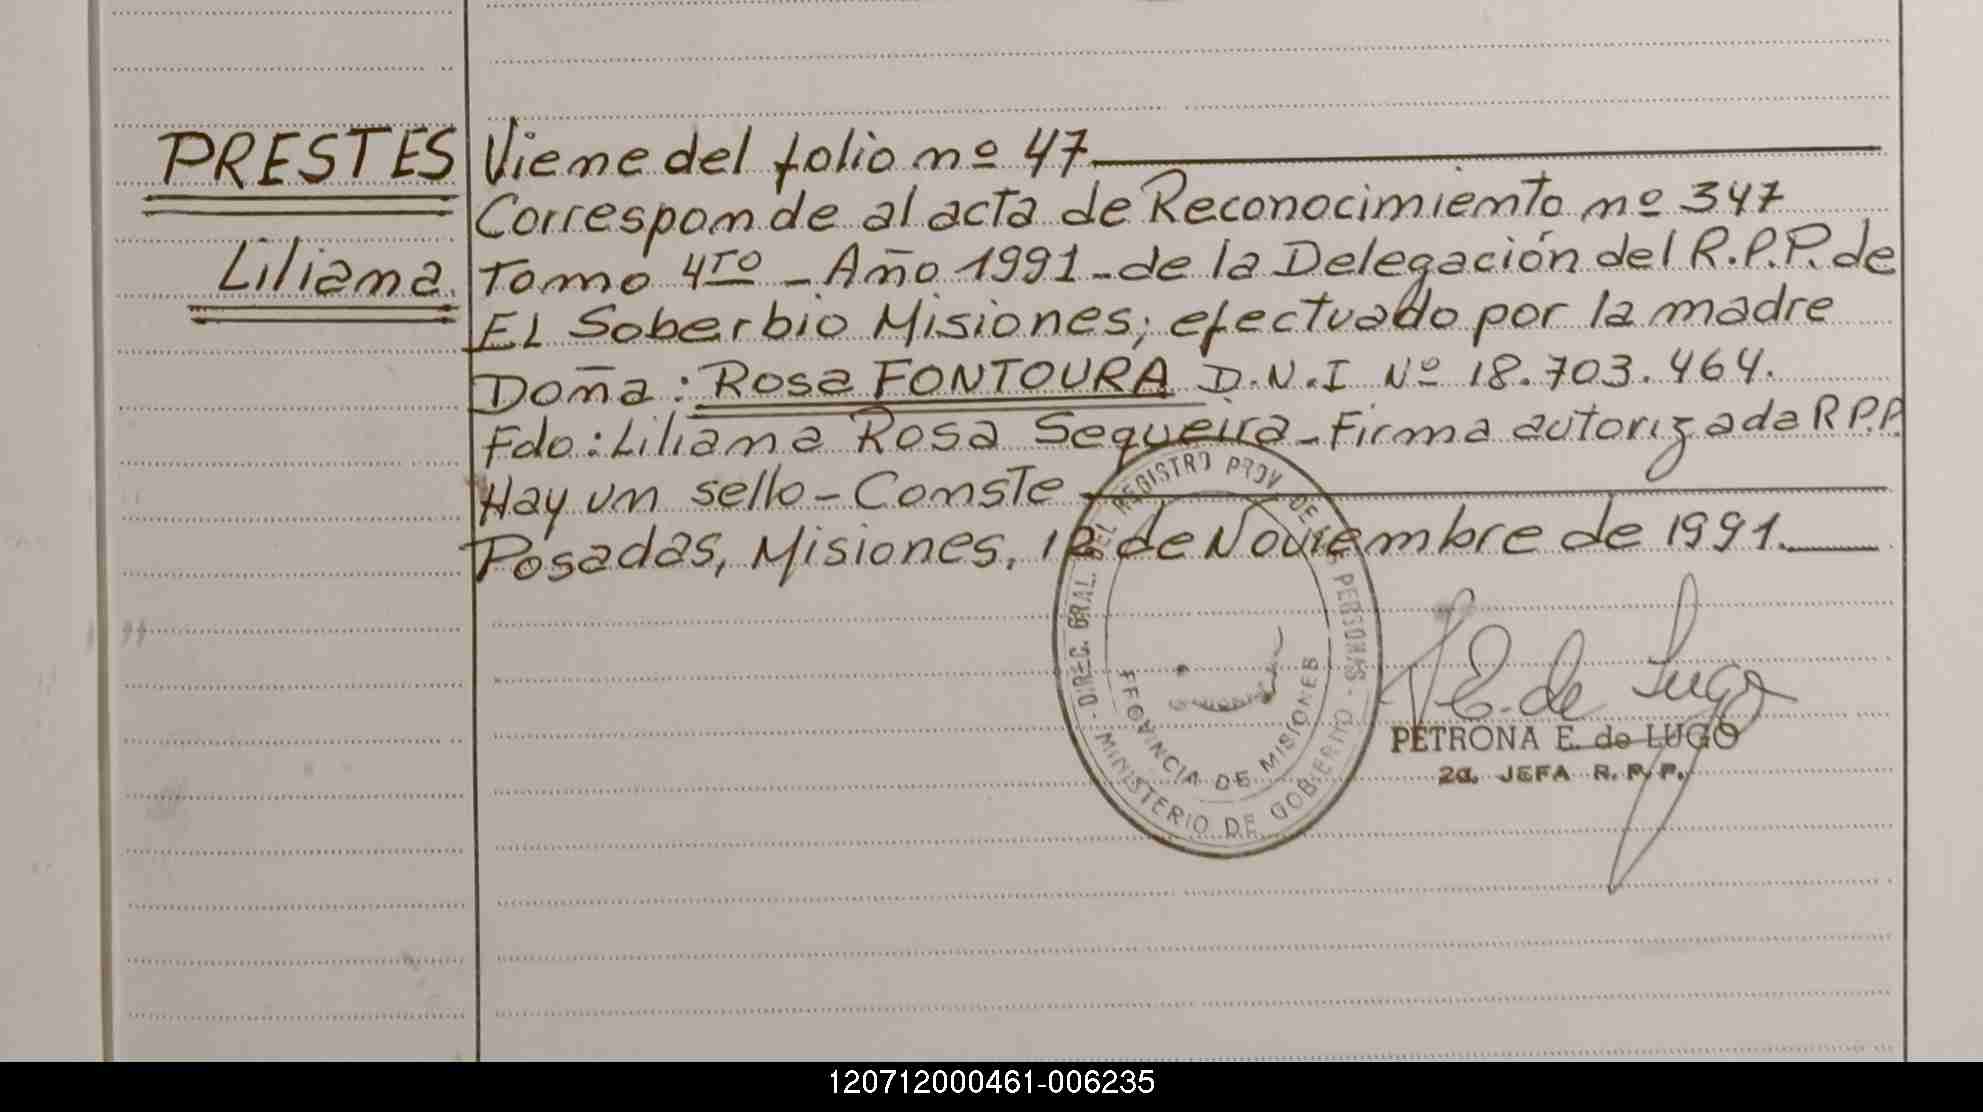 PRESTES
Liliana
Viene del folio nº 47
Corresponde al acta de Reconocimiento nº 347
Tomo 4TO - Año 1991 - de la Delegación del R.P.P. de
EL Soberbio Misiones; efectuado por la madre
Doña: Rosa FONTOURA D.N.I Nº 18.703.464.
Fdo: Liliana Rosa Sequeira - Firma autorizada R P.P.
Hay un sello - Conste
Posadas, Misiones, 12 de Noviembre de 1991.
DIREC. GRAL. DEL REGISTRO PROV. DE LAS PERSONAS - MINISTERIO DE GOBIERNO -
PROVINCIA DE MISIONES
P E. de Lugo
PETRONA E. de LUGO
2a. JEFA R. P. P.
120712000461-006235